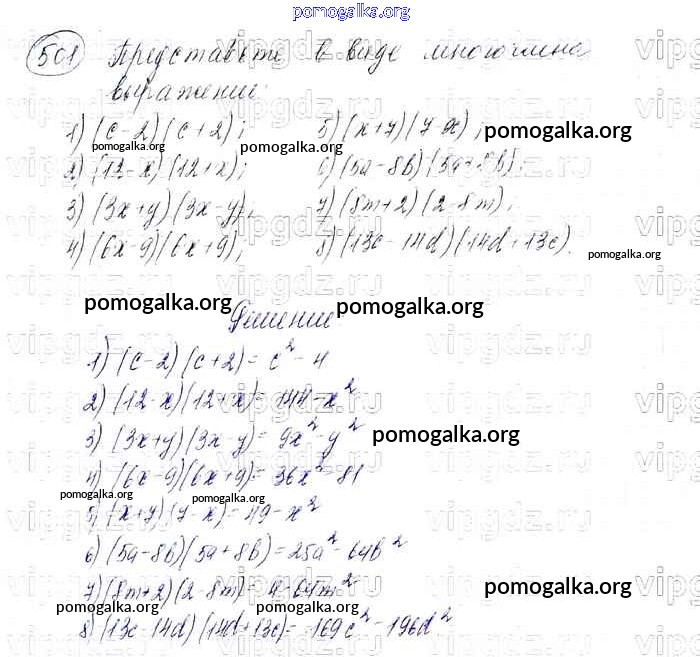 pomogalka.org
501 Представьте в виде многочлена
выражение:
1) (c-2)(c+2); 5) (x+7)(7-x);
pomogalka.org pomogalka.org pomogalka.org
2) (12-x)(12+x); 6) (5a-8b)(5a+8b);
3) (3x+y)(3x-y); 7) (8m+2)(2-8m);
4) (6x-9)(6x+9); 8) (13c-14d)(14d+13c).
pomogalka.org
pomogalka.org pomogalka.org
Решение
1) (c-2)(c+2) = c² - 4
2) (12-x)(12+x) = 144 - x²
3) (3x+y)(3x-y) = 9x² - y²
pomogalka.org
4) (6x-9)(6x+9) = 36x² - 81
pomogalka.org pomogalka.org
5) (x+7)(7-x) = 49 - x²
6) (5a-8b)(5a+8b) = 25a² - 64b²
7) (8m+2)(2-8m) = 4 - 64m²
pomogalka.org
pomogalka.org pomogalka.org
8) (13c-14d)(14d+13c) = 169c² - 196d²
vipgdz.ru